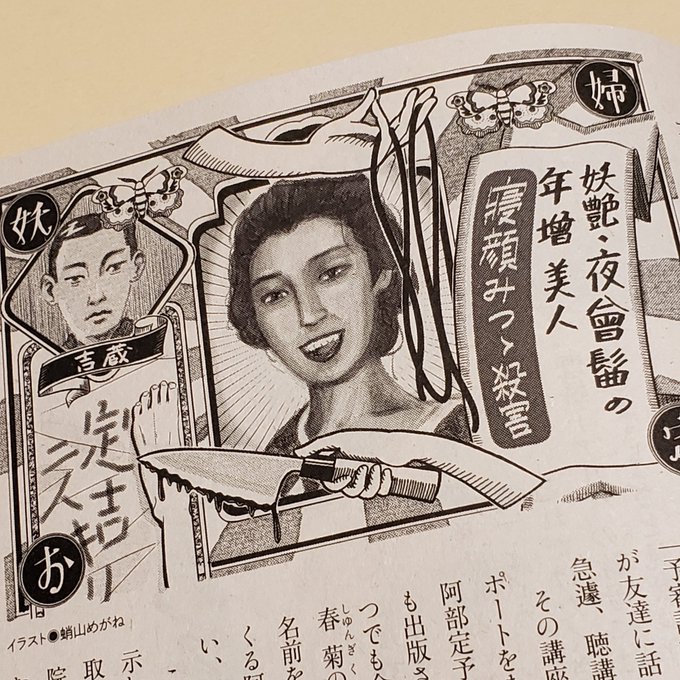 妖
婦
妖艶・夜會髷の
年增美人
寝顔みつゝ殺害
吉蔵
定吉
お
イラスト●蛸山めがね
が友達に話
急遽、聴講
その講座
ポートをま
阿部定予
も出版さ
つでも
しゅんぎく
春菊の
名前を
くる阿
い、
示
取
院